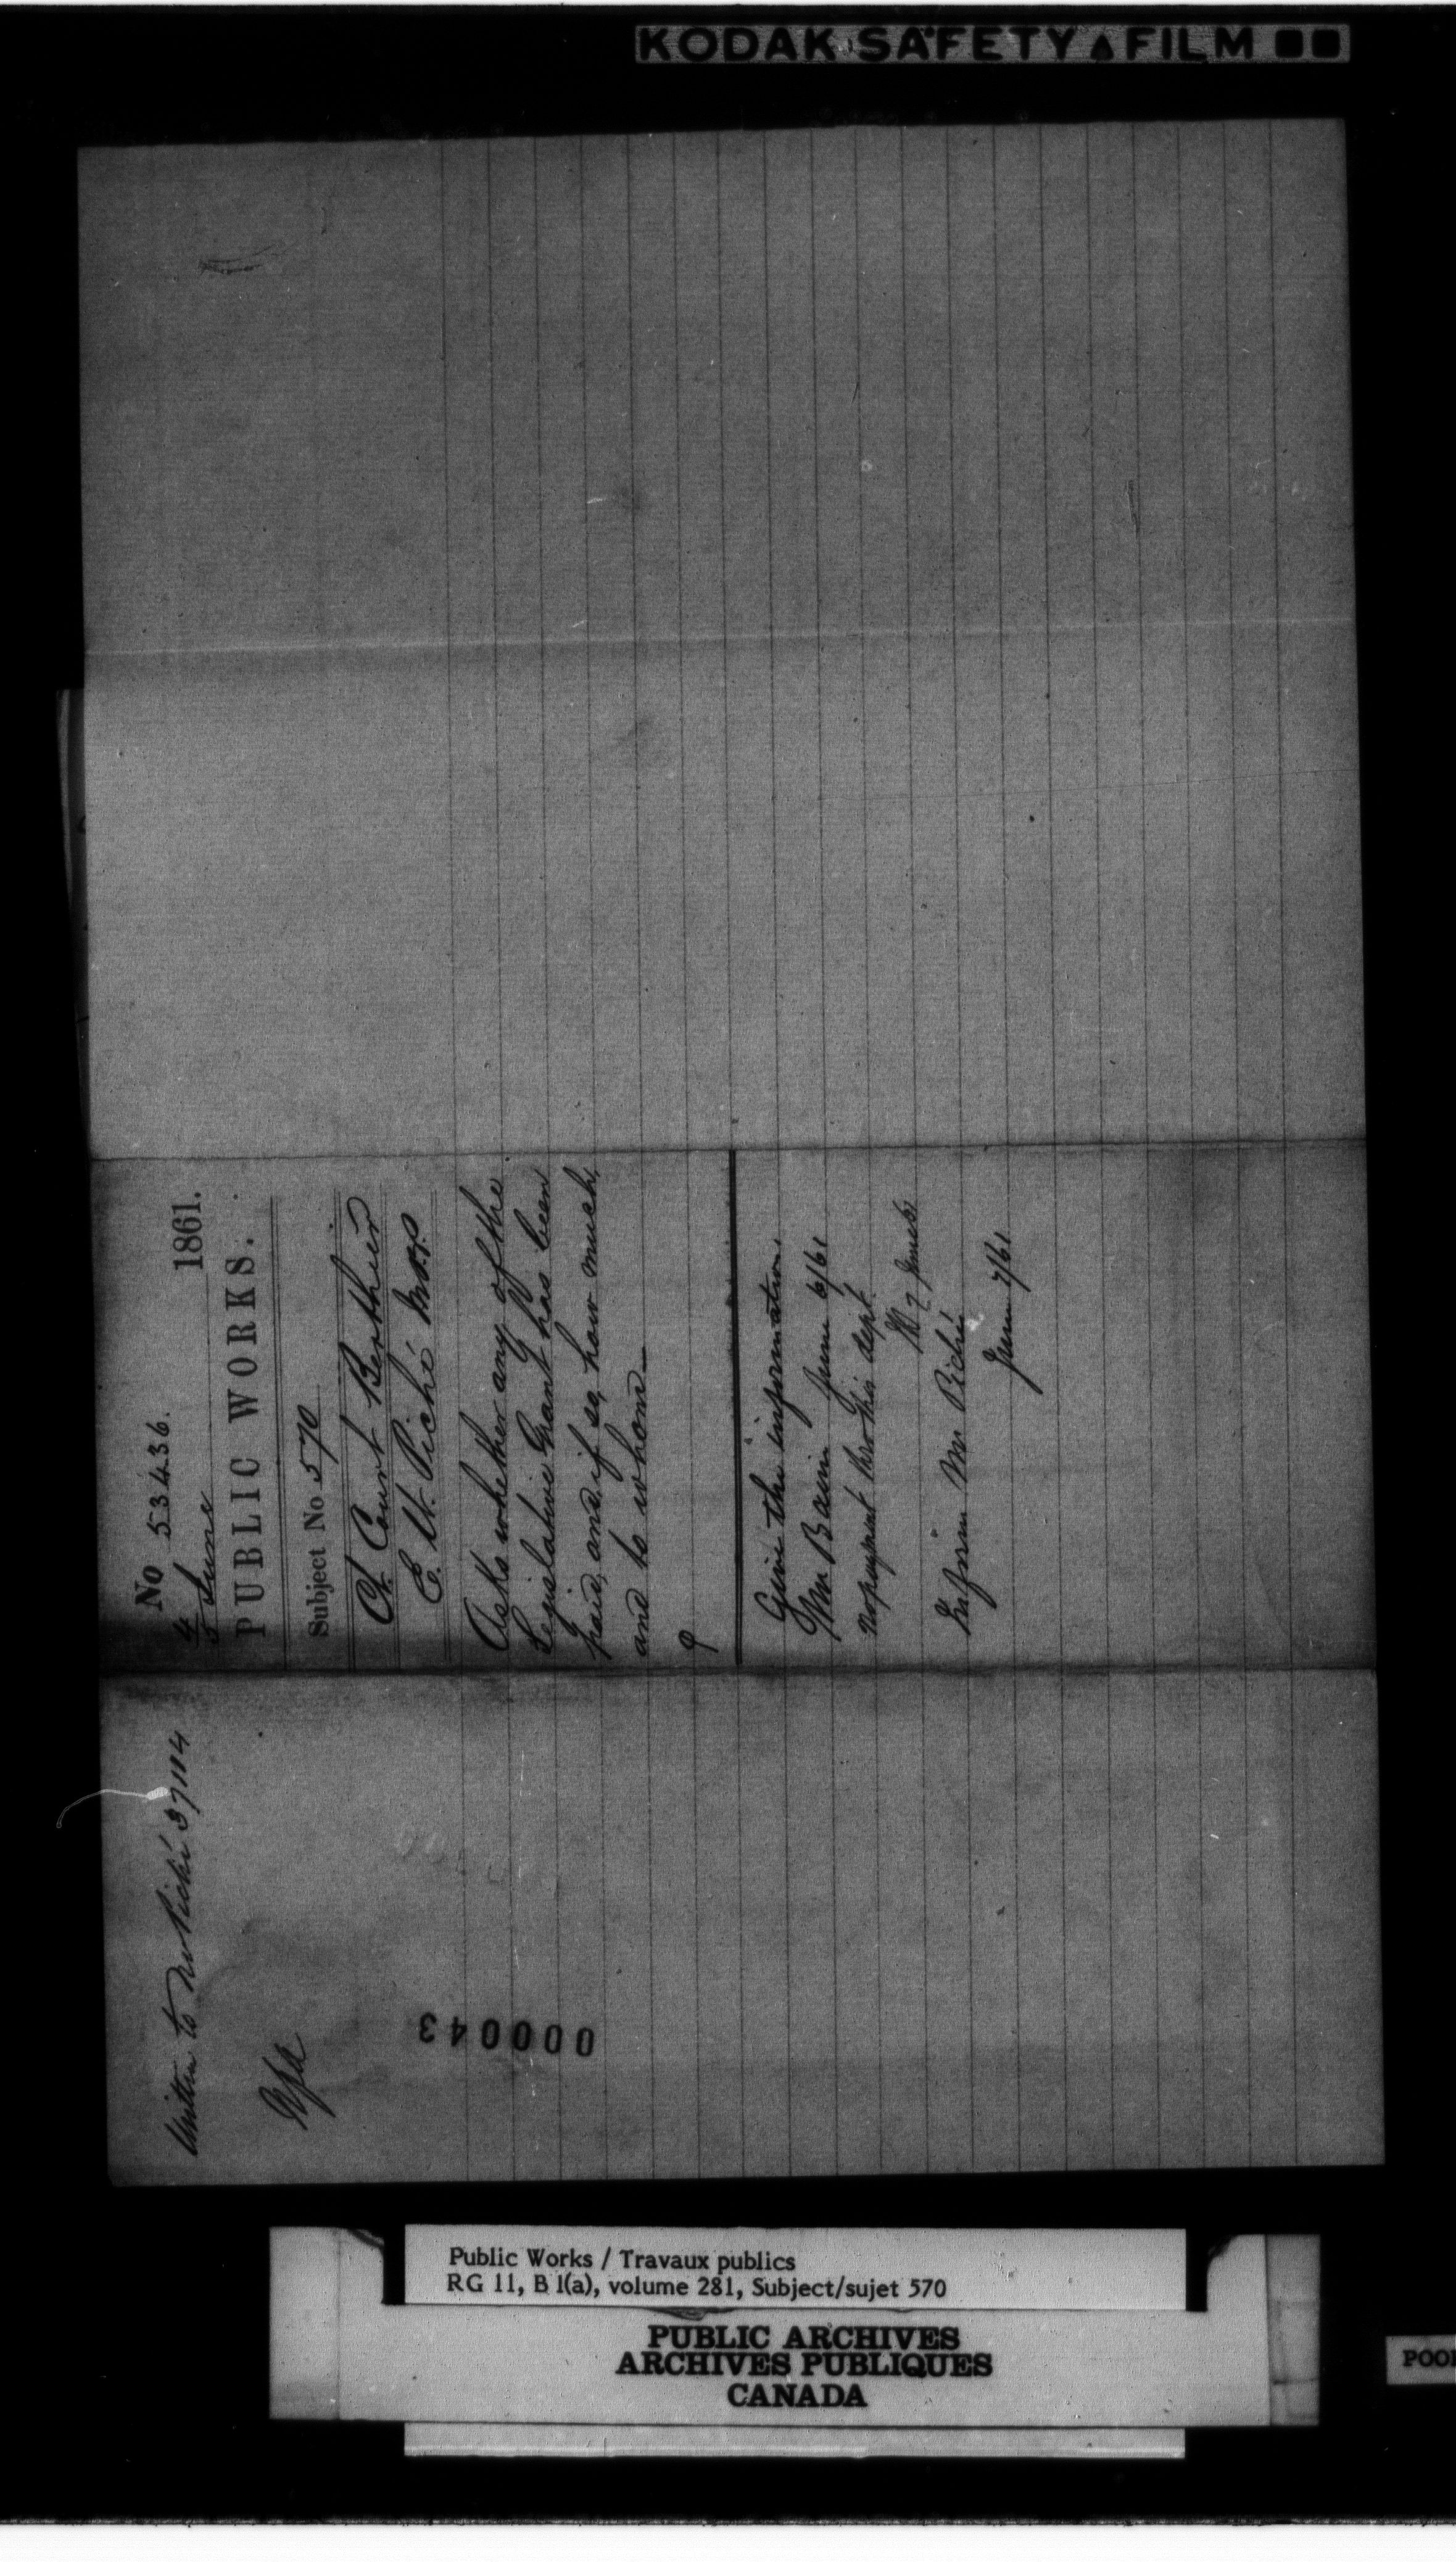 KODAK SAFETY FILM
No 53436.
4/5 June 1861.
PUBLIC WORKS.
Subject No 570
Ct. Court Berthier
E. U. Piché M.P.P.
Asks whether any of the
Legislative Grant has been
paid, and if so, how much,
and to whom_
Give the information.
Mr Bain June 6/61
No payment thro this dept.
7 June 61
Inform Mr Piché
June 7/61
Written to Mr Piché 37114
000043
Public Works / Travaux publics
RG 11, B 1(a), volume 281, Subject/sujet 570
PUBLIC ARCHIVES
ARCHIVES PUBLIQUES
CANADA